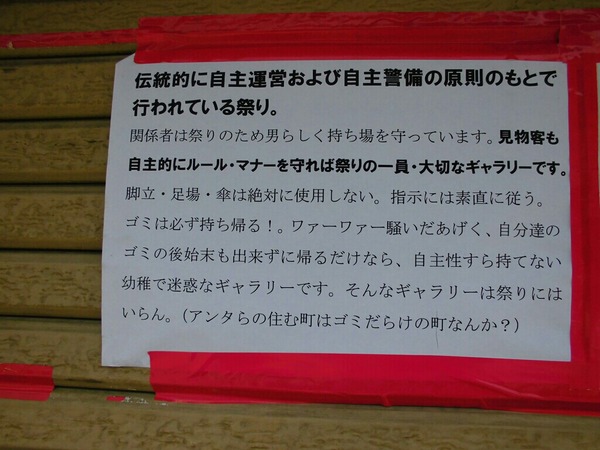 伝統的に自主運営および自主警備の原則のもとで
行われている祭り。
関係者は祭りのため男らしく持ち場を守っています。見物客も
自主的にルール・マナーを守れば祭りの一員・大切なギャラリーです。
脚立・足場・傘は絶対に使用しない。指示には素直に従う。
ゴミは必ず持ち帰る！。ワァーワァー騒いだあげく、自分達の
ゴミの後始末も出来ずに帰るだけなら、自主性すら持てない
幼稚で迷惑なギャラリーです。そんなギャラリーは祭りには
いらん。（アンタらの住む町はゴミだらけの町なんか？）